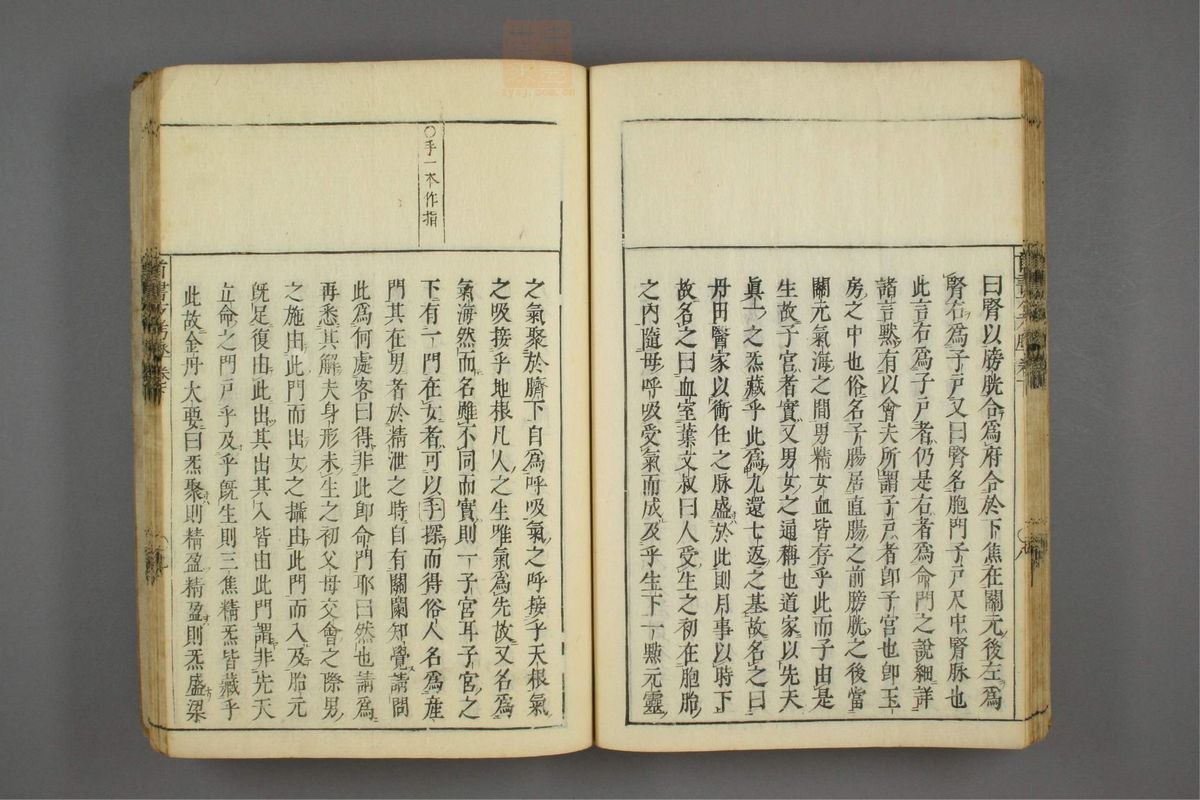 曰腎以膀胱合為府合於下焦在關元後左為
腎右為子戶又曰腎名胞門子戶尺中腎脉也
此言右為子戶者仍是右者為命門之說細詳
諸言黙有以會夫所謂子戶者卽子宮也卽玉
房之中也俗名子腸居直腸之前膀胱之後當
關元氣海之間男精女血皆存乎此而子由是
生故子宮者實又男女之通稱也道家以先天
眞一之炁藏乎此為九還七返之基故名之曰
丹田醫家以衝任之脉盛於此則月事以時下
故名之曰血室葉文叔曰人受生之初在胞胎
之內隨母呼吸受氣而成及乎生下一㸃元靈
○手一本作指
之氣聚於臍下自為呼吸氣之呼接乎天根氣
之吸接乎地根凡人之生唯氣為先故又名為
氣海然而名雖不同而實則一子宮耳子宮之
下有一門在女者可以手探而得俗人名為産
門其在男者於精泄之時自有關闌知覺請問
此為何處客曰得非此卽命門耶曰然也請為
再悉其解夫身形未生之初父母交會之際男
之施由此門而出女之攝由此門而入及胎元
既足復由此出其出其入皆由此門謂非先天
立命之門戶乎及乎既生則三焦精炁皆藏乎
此故金丹大要曰炁聚則精盈精盈則炁盛梁